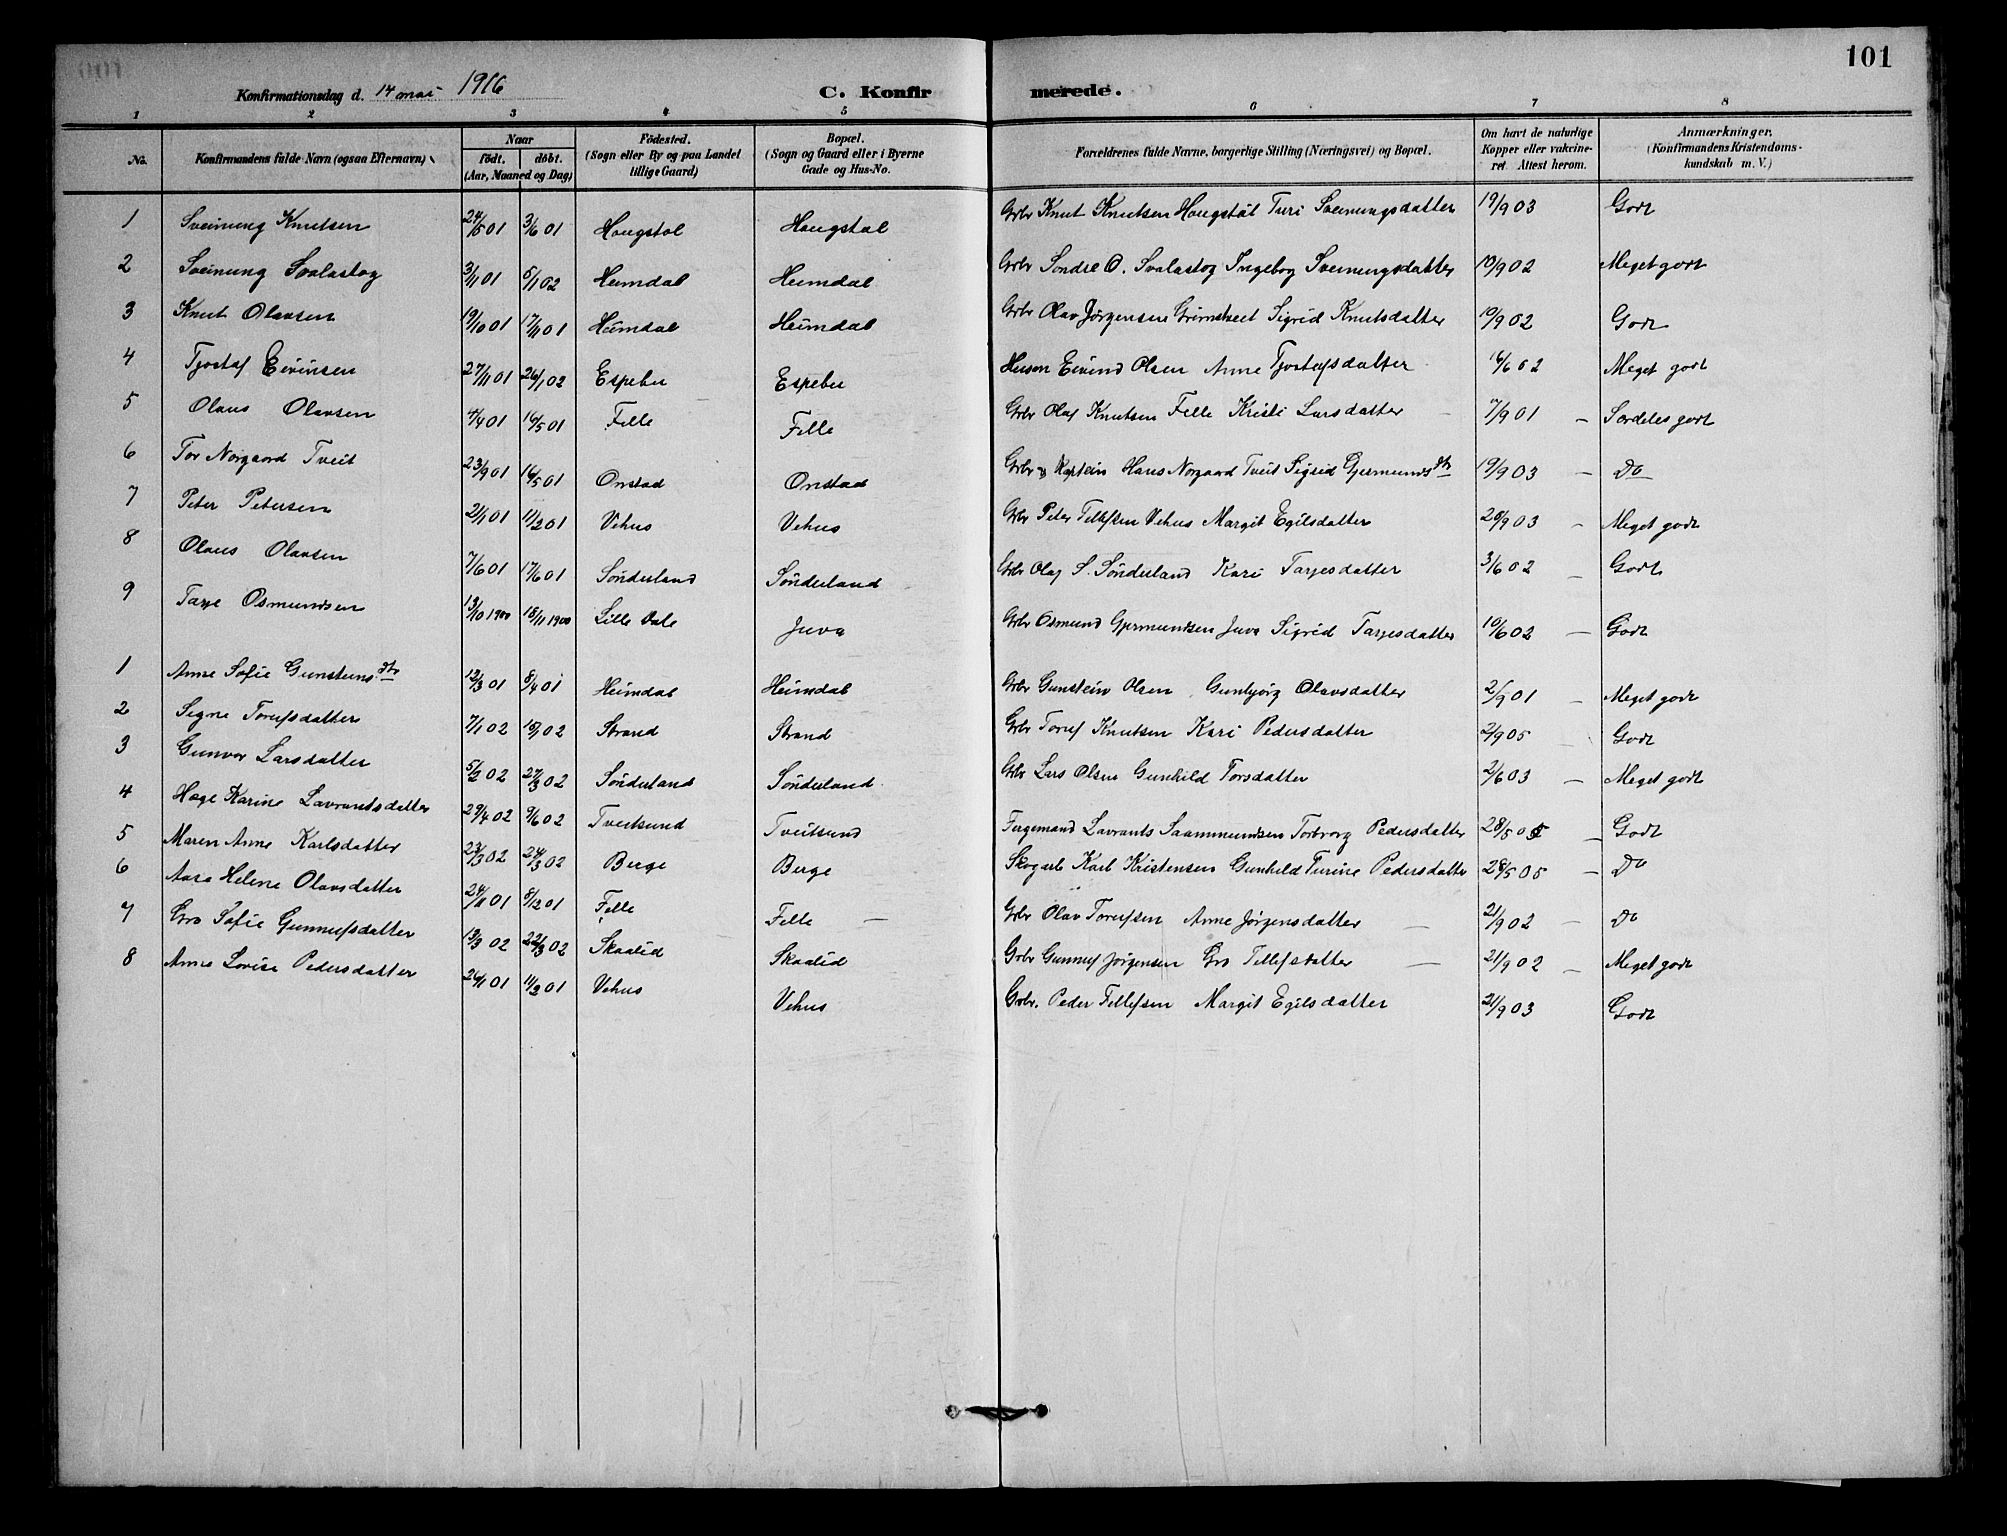 101
Konfirmationsdag d. 14 mai 1916 C. Konfir merede.
1 2 3 4 5 6 7 8
No. Konfirmandens fulde Navn (ogsaa Efternavn) Naar født. døbt. (Aar, Maaned og Dag) Födested. (Sogn eller By og paa Landet tillige Gaard) Bopæl. (Sogn og Gaard eller i Byerne Gade og Hus-No. Forældrenes fulde Navne, borgerlige Stilling (Næringsvei) og Bopæl. Om havt de naturlige Kopper eller vakcineret. Attest herom. Anmærkninger. (Konfirmandens Kristendomskundskab m. V.)
1 Sveinung Knutsen 24/5 01 3/6 01 Haugstøl Haugstøl Grbr Knut Knutsen Haugstøl Turi Sveinungsdatter 19/9 03 Godt
2 Sveinung Svalastog 3/11 01 5/1 02 Heimdal Heimdal Grbr Sondre O. Svalastog Ingebog Sveinungsdatter 10/9 02 Meget godt
3 Knut Olavsen 19/10 01 17/11 01 Heimdal Heimdal Grbr Olav Jørgensen Grimstveit Sigrid Knutsdatter 10/9 02 Godt
4 Tjostaf Eivinsen 27/11 01 26/1 02 Espeber Espeber Husm Eivind Olsen Anne Tjostafsdatter 16/6 02 Meget godt
5 Olaus Olavsen 4/4 01 16/5 01 Felle Felle Grbr Olaf Knutsen Felle Kristi Larsdatter 7/9 01 – Særdeles godt
6 Tor Norgaard Tveit 23/9 01 16/5 01 Onstad Onstad Grbr og Kaptein Hans Norgaard Tveit Sigrid Gjermundsdtr 19/9 03 – Do
7 Peter Petersen 21/1 01 11/2 01 Vehus Vehus Grbr Peter Tellefsen Vehus Margit Egilsdatter 20/9 03 – Meget godt
8 Olaus Olavsen 7/6 01 17/6 01 Sønderland Sønderland Grbr Olaf S. Sønderland Kari Tarjesdatter 3/6 02 – Godt
9 Tarje Osmundsen 13/10 1900 18/11 1900 Lille Dale Juva Grbr Osmund Gjermundsen Juva Sigrid Tarjesdatter 10/6 02 – Godt
1 Anne Sofie Gunsteinsdtr 12/3 01 8/4 01 Heimdal Heimdal Grbr Gunstein Olsen Gunbjørg Olavsdatter 2/9 01 – Meget godt
2 Signe Torufsdatter 7/1 02 02 Strand Strand Grbr Toruf Knutsen Kari Pedersdatter 2/9 05 – Godt
3 Gunvor Larsdatter 5/2 02 27/3 02 Sønderland Sønderland Grbr Lars Olsen Gunhild Torsdatter 2/6 03 – Meget godt
4 Hæge Karine Lavrantsdatter 29/4 02 9/6 02 Tveitsund Tveitsund Fergemand Lavrants Saammundsen Torborg Pedersdatter 28/5 05 – Godt
5 Maren Anne Karlsdatter 02 24/3 02 Berge Berge Skogarb Karl Kristensen Gunhild Turine Pedersdatter 28/5 05 – Do
6 Aase Helene Olavsdatter 24/11 01 8/12 01 Felle Felle – Grbr Olav Torufsen Anne Jørgensdatter – 21/9 02 – Do
7 Gro Sofie Gunnufsdatter 13/3 02 22/3 02 Skaalid Skaalid Grbr Gunnuf Jørgensen Gro Tellefsdatter – 21/9 02 – Meget godt
8 Anne Lovise Pedersdatter 01 11/2 01 Vehus Vehus Grbr. Peder Tellefsen Margit Egilsdatter 21/9 03 Godt